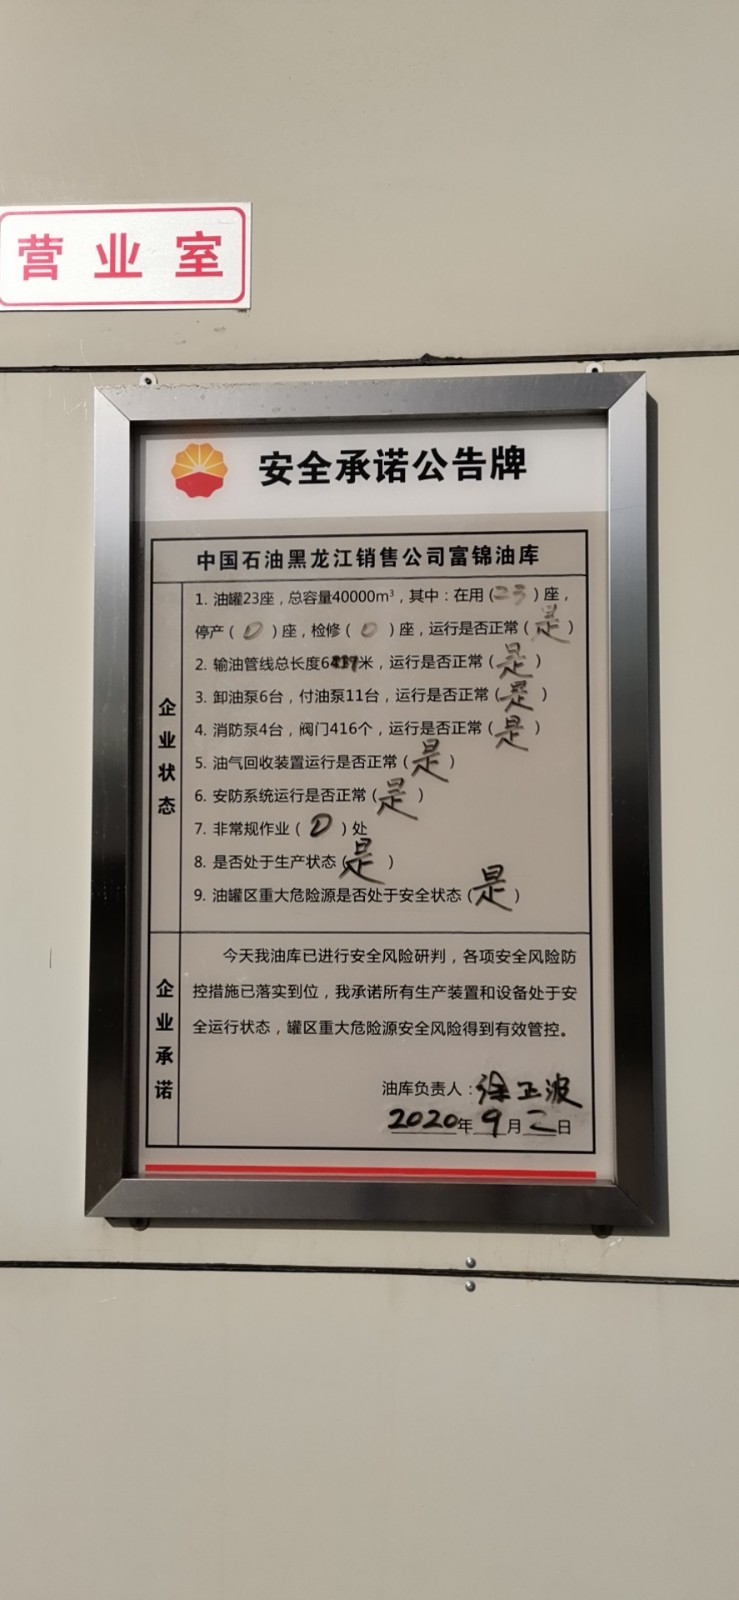 营业室
安全承诺公告牌
中国石油黑龙江销售公司富锦油库
企业状态
1. 油罐23座，总容量40000m³，其中：在用（23）座，
停产（0）座，检修（0）座，运行是否正常（是）
2. 输油管线总长度米，运行是否正常（是）
3. 卸油泵6台，付油泵11台，运行是否正常（是）
4. 消防泵4台，阀门416个，运行是否正常（是）
5. 油气回收装置运行是否正常（是）
6. 安防系统运行是否正常（是）
7. 非常规作业（0）处
8. 是否处于生产状态（是）
9. 油罐区重大危险源是否处于安全状态（是）
企业承诺
今天我油库已进行安全风险研判，各项安全风险防
控措施已落实到位，我承诺所有生产装置和设备处于安
全运行状态，罐区重大危险源安全风险得到有效管控。
油库负责人：徐正波
2020年9月二日